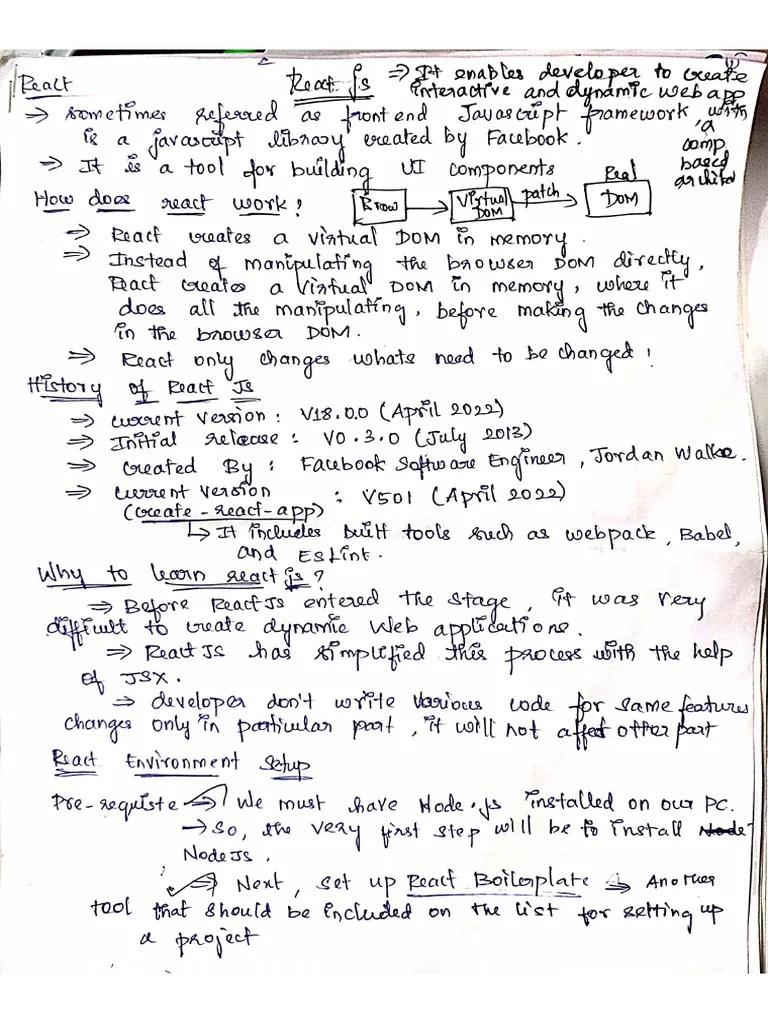 React
React Js ⇒ It enables developer to create
interactive and dynamic web app
with
a
comp
based
⇒ sometimes referred as front end Javascript framework,
is a javascript library created by Facebook.
⇒ It is a tool for building UI components
How does react work?
Brow → Virtual DOM patch → Real DOM
⇒ React creates a virtual DOM in memory.
⇒ Instead of manipulating the browser DOM directly,
React creates a virtual DOM in memory, where it
does all the manipulating, before making the changes
in the browser DOM.
⇒ React only changes whats need to be changed!
History of React Js
⇒ current version: V18.0.0 (April 2022)
⇒ Initial release: V0.3.0 (July 2013)
⇒ created By: Facebook Software Engineer, Jordan Walke.
⇒ current version : V501 (April 2022)
(create-react-app)
↳ It includes built tools such as webpack, Babel,
and ESLint.
Why to learn react js?
⇒ Before ReactJs entered the stage, it was very
difficult to create dynamic Web applications.
⇒ ReactJS has simplified this process with the help
of JSX.
⇒ developer don't write various code for same features
changes only in particular part, it will not affect other part
React Environment Setup
Pre-requiste ⇒ We must have Node.js installed on our PC.
→ So, the very first step will be to install Node
NodeJs.
⇒ Next, set up React Boilerplate ⇒ Another
tool that should be included on the list for setting up
a project